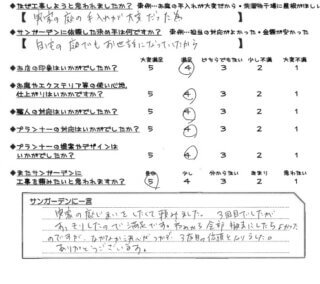 ◆なぜ工事しようと思われましたか？ 事例…お庭の手入れが大変だから・洗濯物干場に屋根がほしい
【 実家の庭の手入れが大変だった為
◆サンガーデンに依頼した決め手は何ですか？ 事例…担当の対応がよかった・金額が安かった
【 自宅の庭でもお世話になっていたから
大変満足 満足 どちらでもない 少し不満 大変不満
◆お店の印象はいかがでしたか？ 5 4 3 2 1
◆お庭やエクステリア等の使い心地、
仕上がりはいかがですか？ 5 4 3 2 1
◆職人の対応はいかがでしたか？ 5 4 3 2 1
◆プランナーの対応はいかがでしたか？ 5 4 3 2 1
◆プランナーの提案やデザインは
いかがでしたか？ 5 4 3 2 1
◆またサンガーデンに
工事を頼みたいと思われますか？ 5 4 3 2 1
少し 分からない あまり 思わない
サンガーデンに一言
実家の庭じまいをしたくて頼みました。3回目でしたが
すっきりしたので満足です。
のですが、なかなか 3度目の依頼となりました。
ありがとうございます。